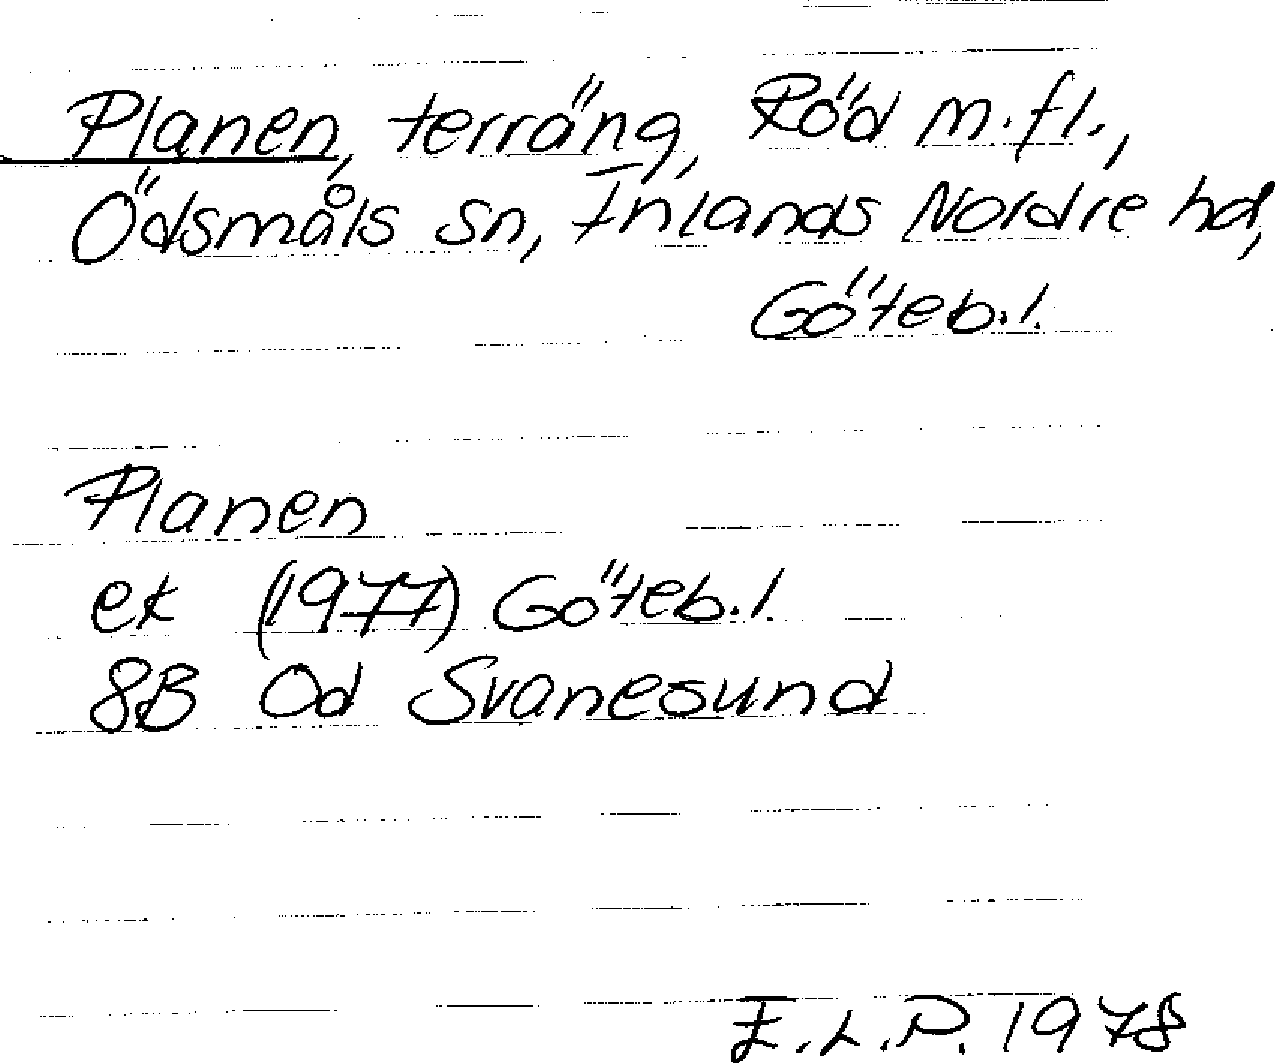 Planen, terräng, Röd m.fl.,
Ödsmåls sn, Inlands Nordre hd,
Göteb.l.
Planen
ek (1977) Göteb.l.
8B Od Svanesund
E.L.P. 1978